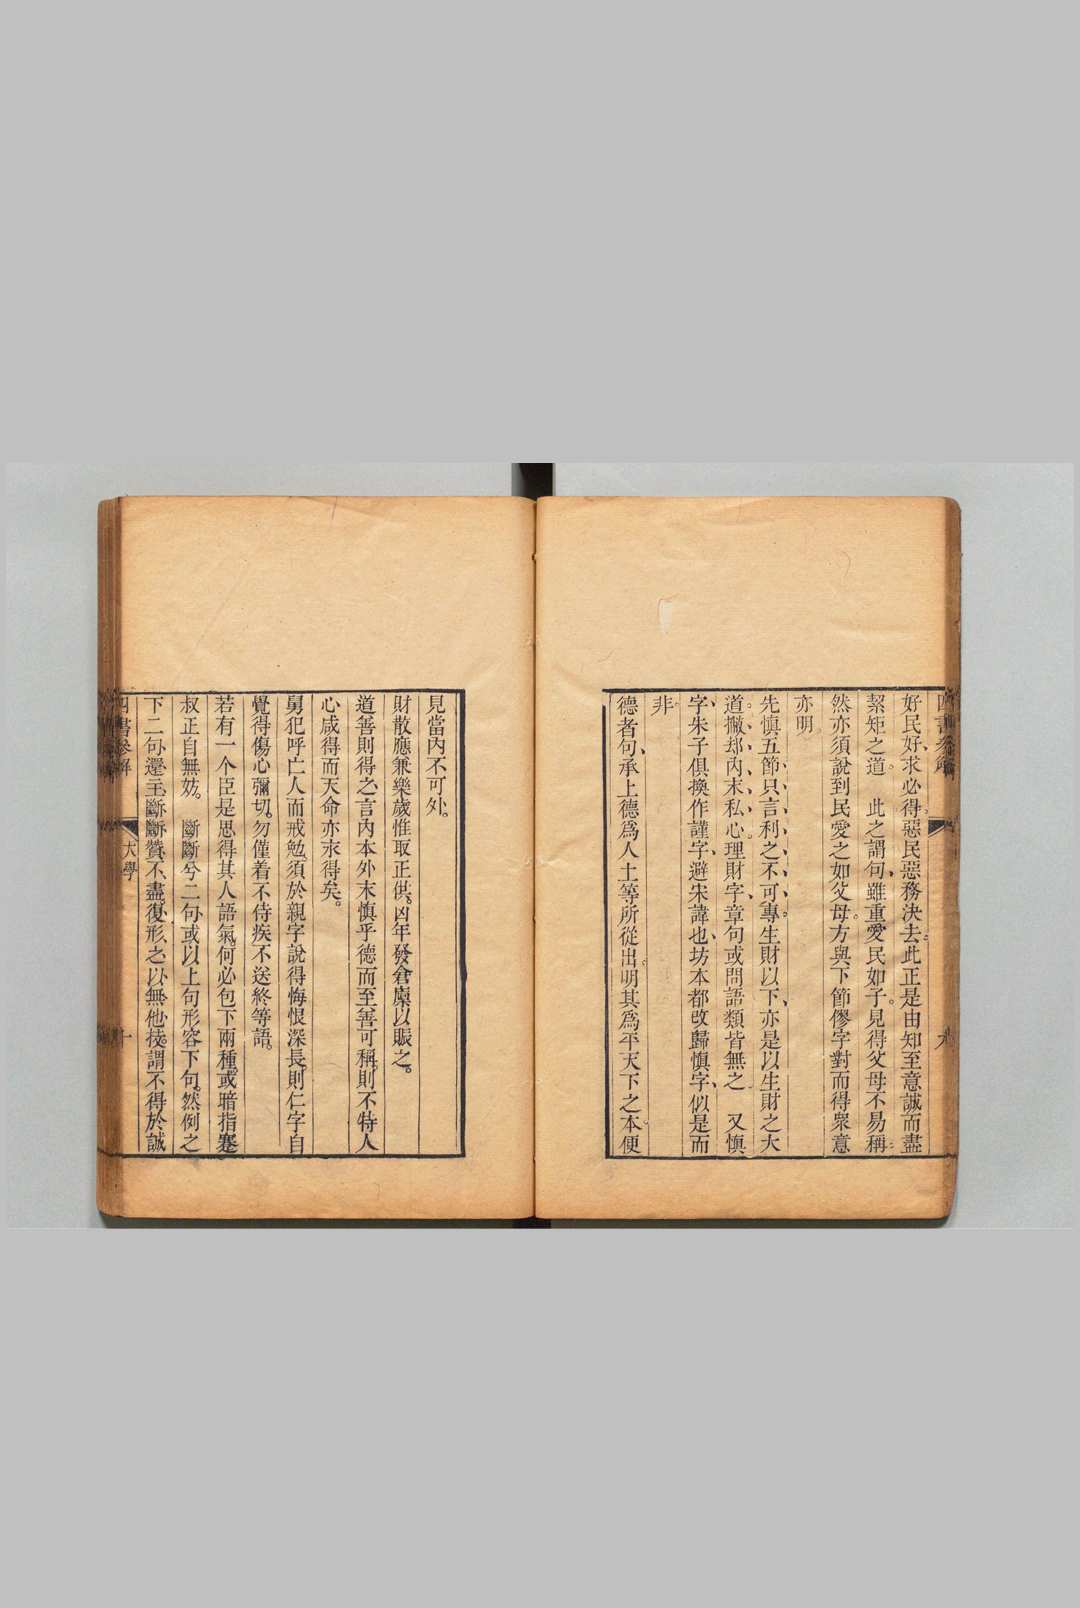 好民好求必得惡民惡務決去此正是由知至意誠而盡
絜矩之道。 此之謂句雖重愛民如子。見得父母不易稱
然亦須說到民愛之如父母。方與下節僇字對而得衆意
亦明
先慎五節只言利之不可專。生財以下亦是以生財之大
道撇却內末私心。理財字章句或問語類皆無之 又慎
字朱子俱換作謹字避宋諱也坊本都改歸慎字似是而
非
德者句承上德爲人土等所從出。明其爲平天下之本便
見當內不可外。
財散應兼樂歲惟取正供。凶年發倉廩以賑之。
道善則得之言內本外末慎乎德而至善可稱則不特人
心咸得而天命亦永得矣。
舅犯呼亡人而戒勉須於親字說得悔恨深長則仁字自
覺得傷心彌切。勿僅着不侍疾不送終等語。
若有一个臣是思得其人語氣。何必包下兩種。或暗指蹇
叔正自無妨。 斷斷兮二句或以上句形容下句。然例之
下二句還主斷斷贊不盡復形之以無他技謂不得於誠
四書參解
大學
十
四書參解
九